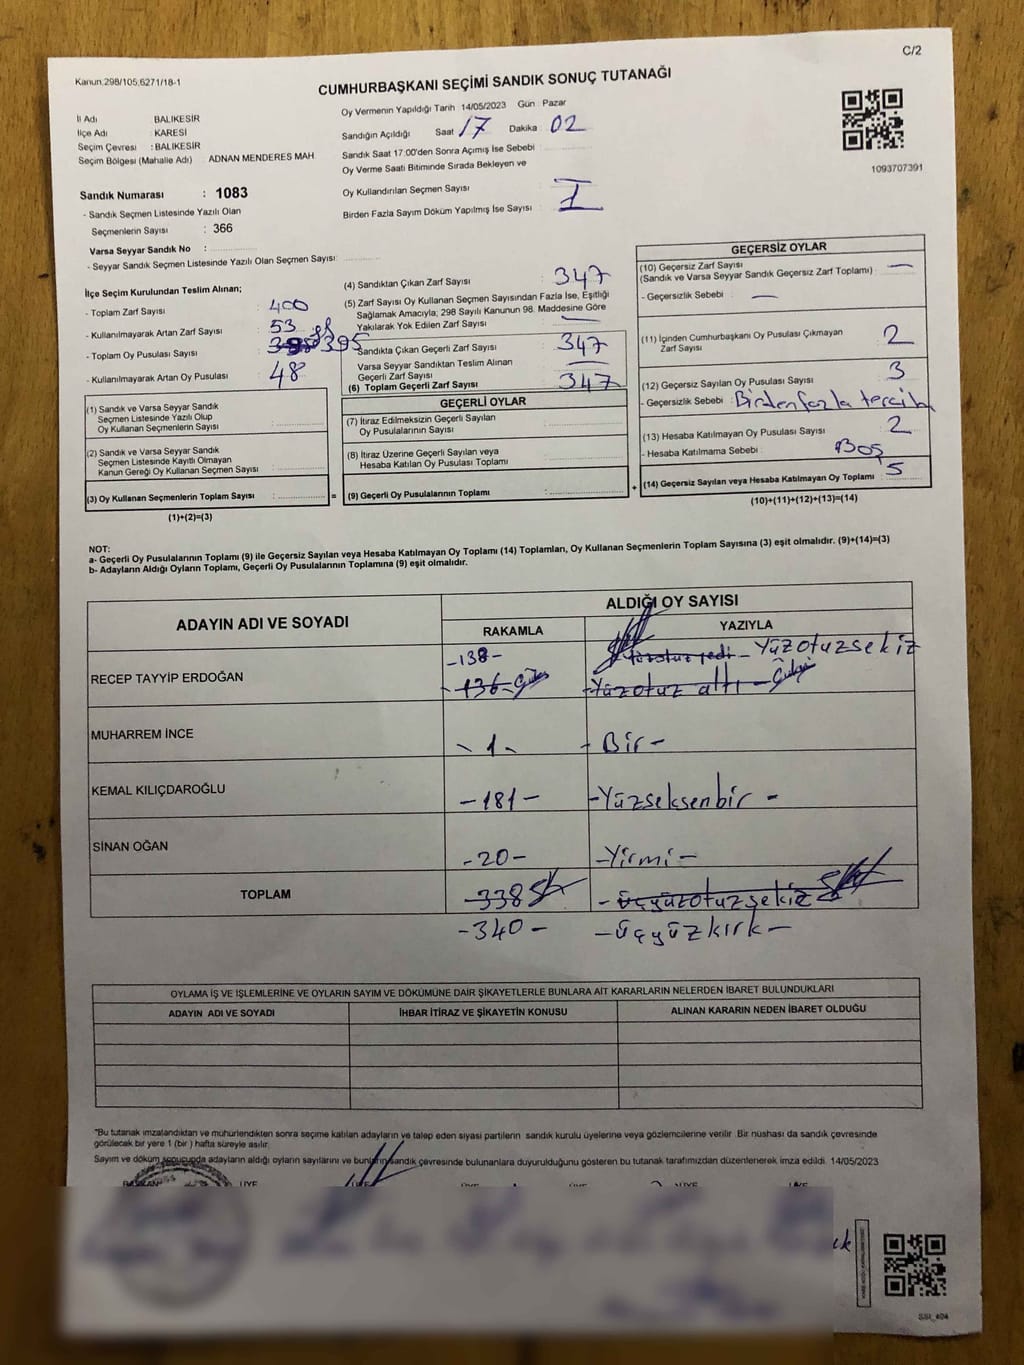 C/2
Kanun:298/105;6271/18-1
CUMHURBAŞKANI SEÇİMİ SANDIK SONUÇ TUTANAĞI
İl Adı BALIKESİR
İlçe Adı : KARESİ
Seçim Çevresi : BALIKESİR
Seçim Bölgesi (Mahalle Adı) ADNAN MENDERES MAH
Oy Vermenin Yapıldığı Tarih 14/05/2023 Gün : Pazar
Sandığın Açıldığı Saat 17 Dakika 02
Sandık Saat 17:00'den Sonra Açımış İse Sebebi
Oy Verme Saati Bitiminde Sırada Bekleyen ve
Oy Kullandırılan Seçmen Sayısı :
Birden Fazla Sayım Döküm Yapılmış İse Sayısı : 1
1093707391
Sandık Numarası : 1083
- Sandık Seçmen Listesinde Yazılı Olan
Seçmenlerin Sayısı : 366
Varsa Seyyar Sandık No :
- Seyyar Sandık Seçmen Listesinde Yazılı Olan Seçmen Sayısı:
İlçe Seçim Kurulundan Teslim Alınan;
- Toplam Zarf Sayısı : 400
- Kullanılmayarak Artan Zarf Sayısı : 53
- Toplam Oy Pusulası Sayısı : 395
- Kullanılmayarak Artan Oy Pusulası : 48
(1) Sandık ve Varsa Seyyar Sandık
Seçmen Listesinde Yazılı Olup
Oy Kullanan Seçmenlerin Sayısı :
(2) Sandık ve Varsa Seyyar Sandık
Seçmen Listesinde Kayıtlı Olmayan
Kanun Gereği Oy Kullanan Seçmen Sayısı :
(3) Oy Kullanan Seçmenlerin Toplam Sayısı : =
(1)+(2)=(3)
(4) Sandıktan Çıkan Zarf Sayısı : 347
(5) Zarf Sayısı Oy Kullanan Seçmen Sayısından Fazla İse, Eşitliği
Sağlamak Amacıyla; 298 Sayılı Kanunun 98. Maddesine Göre
Yakılarak Yok Edilen Zarf Sayısı : —
Sandıkta Çıkan Geçerli Zarf Sayısı : 347
Varsa Seyyar Sandıktan Teslim Alınan
Geçerli Zarf Sayısı : —
(6) Toplam Geçerli Zarf Sayısı : 347
GEÇERLİ OYLAR
(7) İtiraz Edilmeksizin Geçerli Sayılan
Oy Pusulalarının Sayısı :
(8) İtiraz Üzerine Geçerli Sayılan veya
Hesaba Katılan Oy Pusulası Toplamı :
(9) Geçerli Oy Pusulalarının Toplamı : +
GEÇERSİZ OYLAR
(10) Geçersiz Zarf Sayısı : —
(Sandık ve Varsa Seyyar Sandık Geçersiz Zarf Toplamı)
- Geçersizlik Sebebi : —
(11) İçinden Cumhurbaşkanı Oy Pusulası Çıkmayan
Zarf Sayısı : 2
(12) Geçersiz Sayılan Oy Pusulası Sayısı : 3
- Geçersizlik Sebebi : Birden fazla tercih
(13) Hesaba Katılmayan Oy Pusulası Sayısı : 2
- Hesaba Katılmama Sebebi : Boş
(14) Geçersiz Sayılan veya Hesaba Katılmayan Oy Toplamı : 5
(10)+(11)+(12)+(13)=(14)
NOT:
a- Geçerli Oy Pusulalarının Toplamı (9) ile Geçersiz Sayılan veya Hesaba Katılmayan Oy Toplamı (14) Toplamları, Oy Kullanan Seçmenlerin Toplam Sayısına (3) eşit olmalıdır. (9)+(14)=(3)
b- Adayların Aldığı Oyların Toplamı, Geçerli Oy Pusulalarının Toplamına (9) eşit olmalıdır.
ADAYIN ADI VE SOYADI ALDIĞI OY SAYISI
RAKAMLA YAZIYLA
-138- Yüzotuz yedi - Yüzotuzsekiz
RECEP TAYYİP ERDOĞAN -136- -Yüzotuz altı-
MUHARREM İNCE -1- - Bir -
KEMAL KILIÇDAROĞLU -181- -Yüzseksenbir -
SİNAN OĞAN -20- -Yirmi-
TOPLAM -338 -üçyüzotuzsekiz
-340- -üçyüzkırk-
OYLAMA İŞ VE İŞLEMLERİNE VE OYLARIN SAYIM VE DÖKÜMÜNE DAİR ŞİKAYETLERLE BUNLARA AİT KARARLARIN NELERDEN İBARET BULUNDUKLARI
ADAYIN ADI VE SOYADI İHBAR İTİRAZ VE ŞİKAYETİN KONUSU ALINAN KARARIN NEDEN İBARET OLDUĞU
*Bu tutanak imzalandıktan ve mühürlendikten sonra seçime katılan adayların ve talep eden siyasi partilerin sandık kurulu üyelerine veya gözlemcilerine verilir .Bir nüshası da sandık çevresinde
görülecek bir yere 1 (bir ) hafta süreyle asılır.
Sayım ve döküm sonucunda adayların aldığı oyların sayılarını ve bunların sandık çevresinde bulunanlara duyurulduğunu gösteren bu tutanak tarafımızdan düzenlenerek imza edildi. 14/05/2023
BAŞKAN ÜYE ÜYE ÜYE ÜYE ÜYE